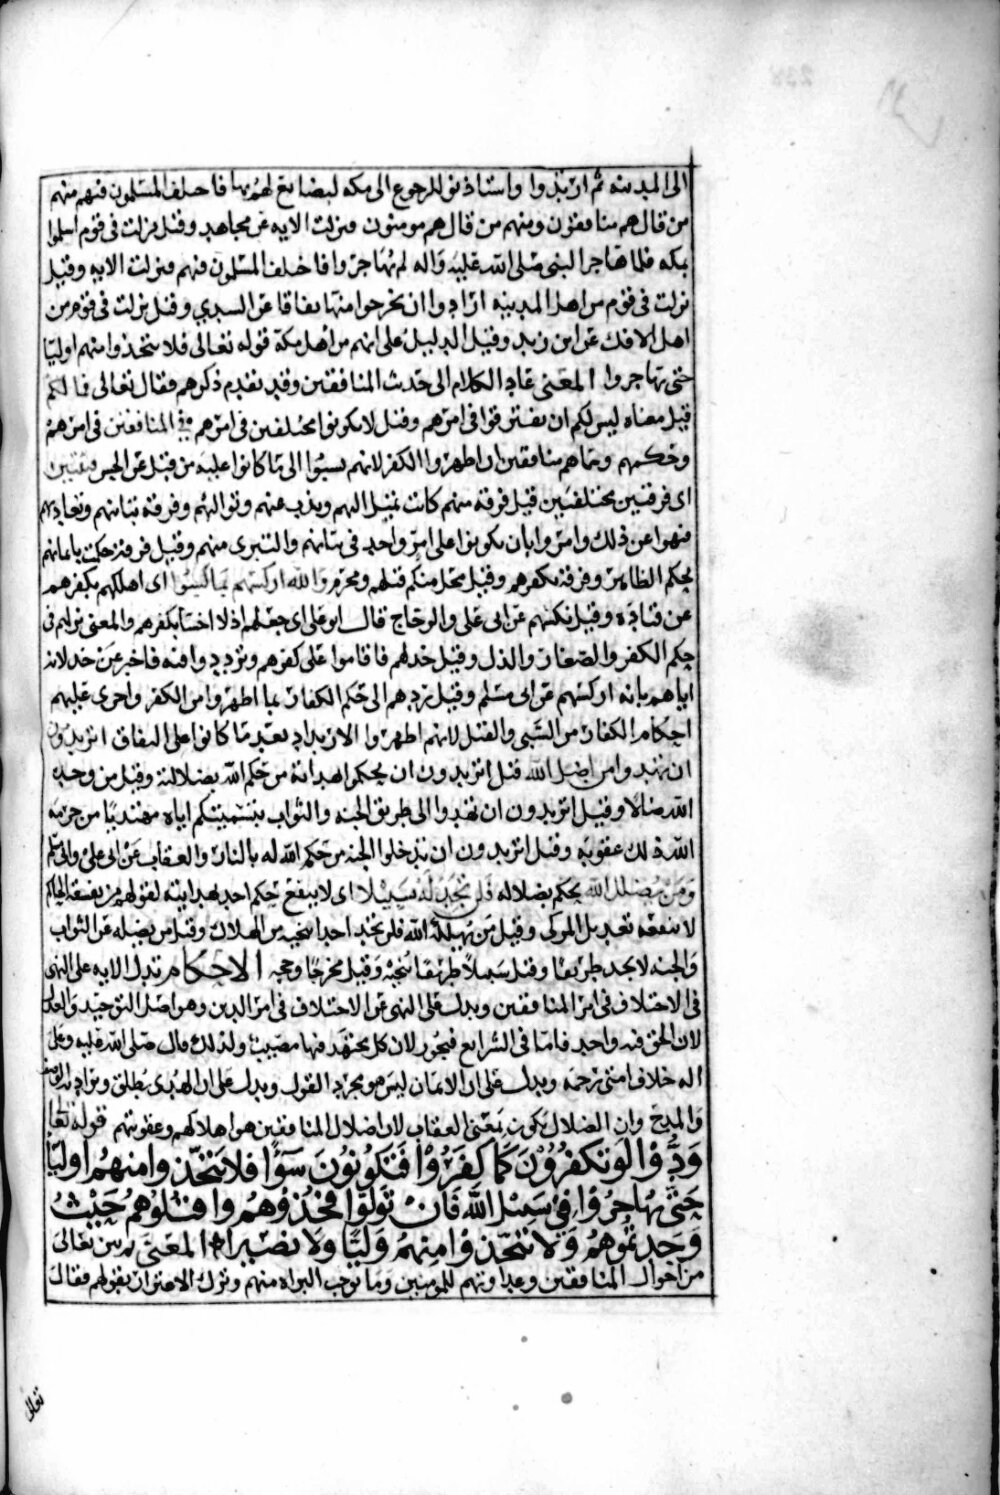 الى المدينه ثم ارتدوا واستاذنوا للرجوع الى مكه لبضايع لهم بها فاختلف المسلمون فيهم منهم
من قال هم منافقون ومنهم من قال هم مومنون فنزلت الايه عن مجاهد وقيل نزلت في قوم اسلموا
بمكه فلما هاجر النبي صلى الله عليه واله لم يهاجروا فاختلف المسلمون فيهم فنزلت الايه وقيل
نزلت في قوم من اهل المدينه ارادوا ان يخرجوا منها نفاقا عن السدي وقيل نزلت في قوم من
اهل الافك عن ابن زيد وقيل الدليل على انهم من اهل مكة قوله تعالى فلا تتخذوا منهم اوليا
حتى يهاجروا المعنى عاد الكلام الى حديث المنافقين وقد تقدم ذكرهم فقال تعالى فما لكم
قيل معناه ليس لكم ان تفترقوا في امرهم وقيل لا تكونوا مختلفين في امرهم في المنافقين في امرهم
وحكمهم وسماهم منافقين ان اظهروا الكفر لانهم نسبوا الى ما كانوا عليه من قبل عن الحسن فئتين
اى فرقتين مختلفتين قيل فرقة منهم كانت تميل اليهم وتذب عنهم وتواليهم وفرقة تباينهم وتعاديهم
فنهوا عن ذلك وامروا بان يكونوا على امر واحد في تباينهم والتبرى منهم وقيل فرقة حكمت بايمانهم
بحكم الظاهر وفرقة بكفرهم وقيل محل منكم قتلهم ومحرم والله اركسهم بما كسبوا اى اهلكهم بكفرهم
عن قتاده وقيل نكسهم عن ابي علي والزجاج قال ابو علي اى جعلهم اذلا اخسا بكفرهم والمعنى تراهم في
حكم الكفر والصغار والذل وقيل خذلهم فاقاموا على كفرهم وترددوا فيه فاخبر عن خذلانه
اياهم بانه اركسهم عن ابى مسلم وقيل ردهم الى حكم الكفار بما اظهروا من الكفر واجرى عليهم
احكام الكفار من السبي والقتل لانهم اظهروا الارتداد بعد ما كانوا على النفاق اتريدون
ان تهدوا من اضل الله قيل اتريدون ان يحكموا بهداية من حكم الله بضلالته وقيل من وجده
الله ضالا وقيل اتريدون ان تهدوا الى طريق الجنه والثواب بتسميتكم اياه مهتديا من حرمه
الله ذلك عقوبه وقيل اتريدون ان تدخلوا الجنه من حكم الله له بالنار والعقاب عن ابى علي وابى مسلم
ومن يضلل الله بحكم بضلاله فلن تجد له سبيلا اى لا ينفع حكم احد بهدايته لقولهم من يفسقه الحاكم
لا ينفعه تعديل المزكى وقيل من يهلكه الله فلن تجد احدا ينجيه من الهلاك وقيل من يضله عن الثواب
والجنه لا يجد طريقا وقيل سبيلا طريقا ينجيه وقيل مخرجا وحجه الاحكام تدل الايه على النهى
في الاختلاف في امر المنافقين ويدل على النهى عن الاختلاف في امر الدين وهو اصل التوحيد والعدل
لان الحق فيه واحد فاما في الشرايع فيجوز لان كل مجتهد فيها مصيب ولذلك قال صلى الله عليه وعلى
اله خلاف امتى رحمه ويدل على ان الايمان ليس هو مجرد القول ويدل على ان الهدى يطلق ويراد به
والمدح وان الضلال يكون بمعنى العقاب لان اضلال المنافقين هو اهلاكهم وعقوبتهم قوله تعالى
وَدُّوا لَوْ تَكْفُرُونَ كَمَا كَفَرُوْا فَتَكُونُونَ سَوَآءً فلا تَتَّخِذوا منهُم اوليا
حَتَّى يُهاجِرُوْا فِيْ سَبِيْلِ اللهِ فَاِنْ تَوَلَّوْا فَخُذُوْهُمْ وَاقْتُلُوْهُمْ حَيْثُ
وَجَدتمُوْهُمْ وَلا تتَّخِذوْا مِنهُمْ وَلِيًّا وَلا نَصِيْرًا المعنى ثم بين تعالى
من احوال المنافقين وعداوتهم للمومنين وما توجب البراه منهم وترك الاغترار بقولهم فقال
تعالى